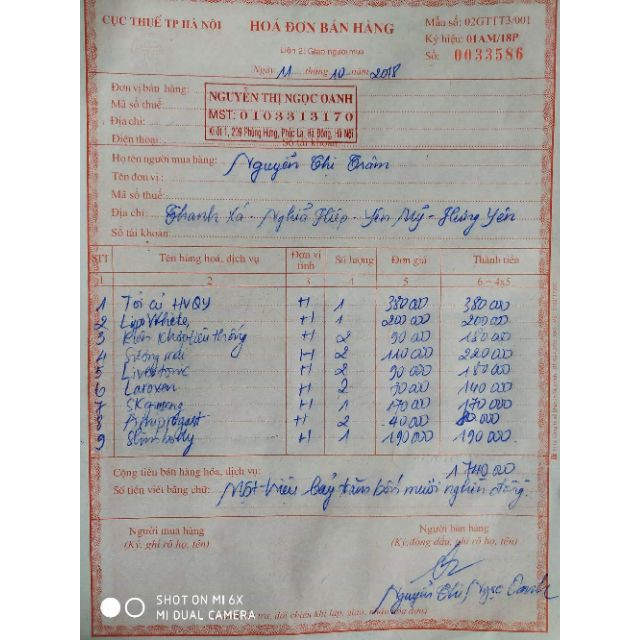 CỤC THUẾ TP HÀ NỘI
HOÁ ĐƠN BÁN HÀNG
Mẫu số: 02GTTT3/001
Liên 2: Giao người mua
Ký hiệu: 01AM/18P
Số: 0033586
Ngày 11 tháng 10 năm 2018
Đơn vị bán hàng:
Mã số thuế:
Địa chỉ:
Điện thoại: Số tài khoản
NGUYỄN THỊ NGỌC OANH
MST: 0103313170
Ki ốt 1, 209 Phùng Hưng, Phúc La, Hà Đông, Hà Nội
Họ tên người mua hàng: Nguyễn Thị Trâm
Tên đơn vị:
Mã số thuế:
Địa chỉ: Thanh Xá - Nghĩa Hiệp - Yên Mỹ - Hưng Yên
Số tài khoản
STT Tên hàng hoá, dịch vụ Đơn vị tính Số lượng Đơn giá Thành tiền
1 2 3 4 5 6 = 4x5
1 Tỏi cụ HVQY H 1 380 000 380 000
2 Lipo White H 1 200 000 200 000
3 Kiện khớp tiêu thống H 2 90 000 180 000
4 H 2 110 000 220 000
5 H 2 90 000 180 000
6 H 2 70 000 140 000
7 H 1 170 000 170 000
8 H 2 40 000 80 000
9 Slim body H 1 190 000 190 000
Cộng tiền bán hàng hóa, dịch vụ: 1 740 000
Số tiền viết bằng chữ: Một triệu bảy trăm bốn mươi nghìn đồng.
Người mua hàng
(Ký, ghi rõ họ, tên)
Người bán hàng
(Ký, đóng dấu, ghi rõ họ, tên)
Nguyễn Thị Ngọc Oanh
SHOT ON MI 6X
MI DUAL CAMERA
tra, đối chiếu khi lập, giao, nhận hóa đơn)